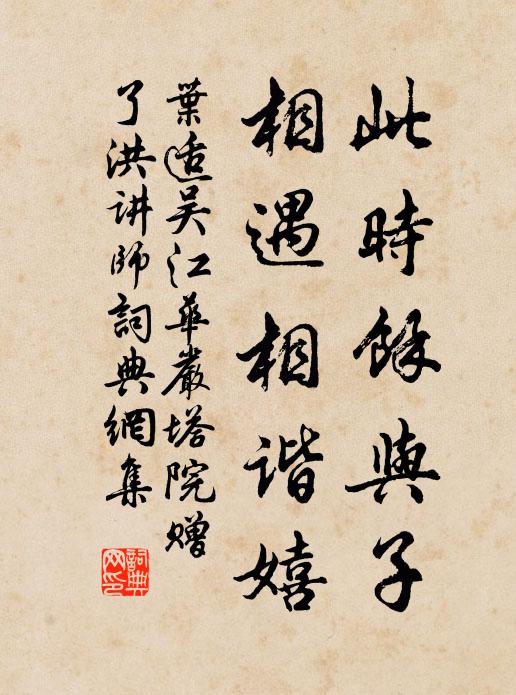 此時餘與子
相遇相谐嬉
葉适吴江華嚴塔院赠
了洪讲師詞典網集
詞典
网印